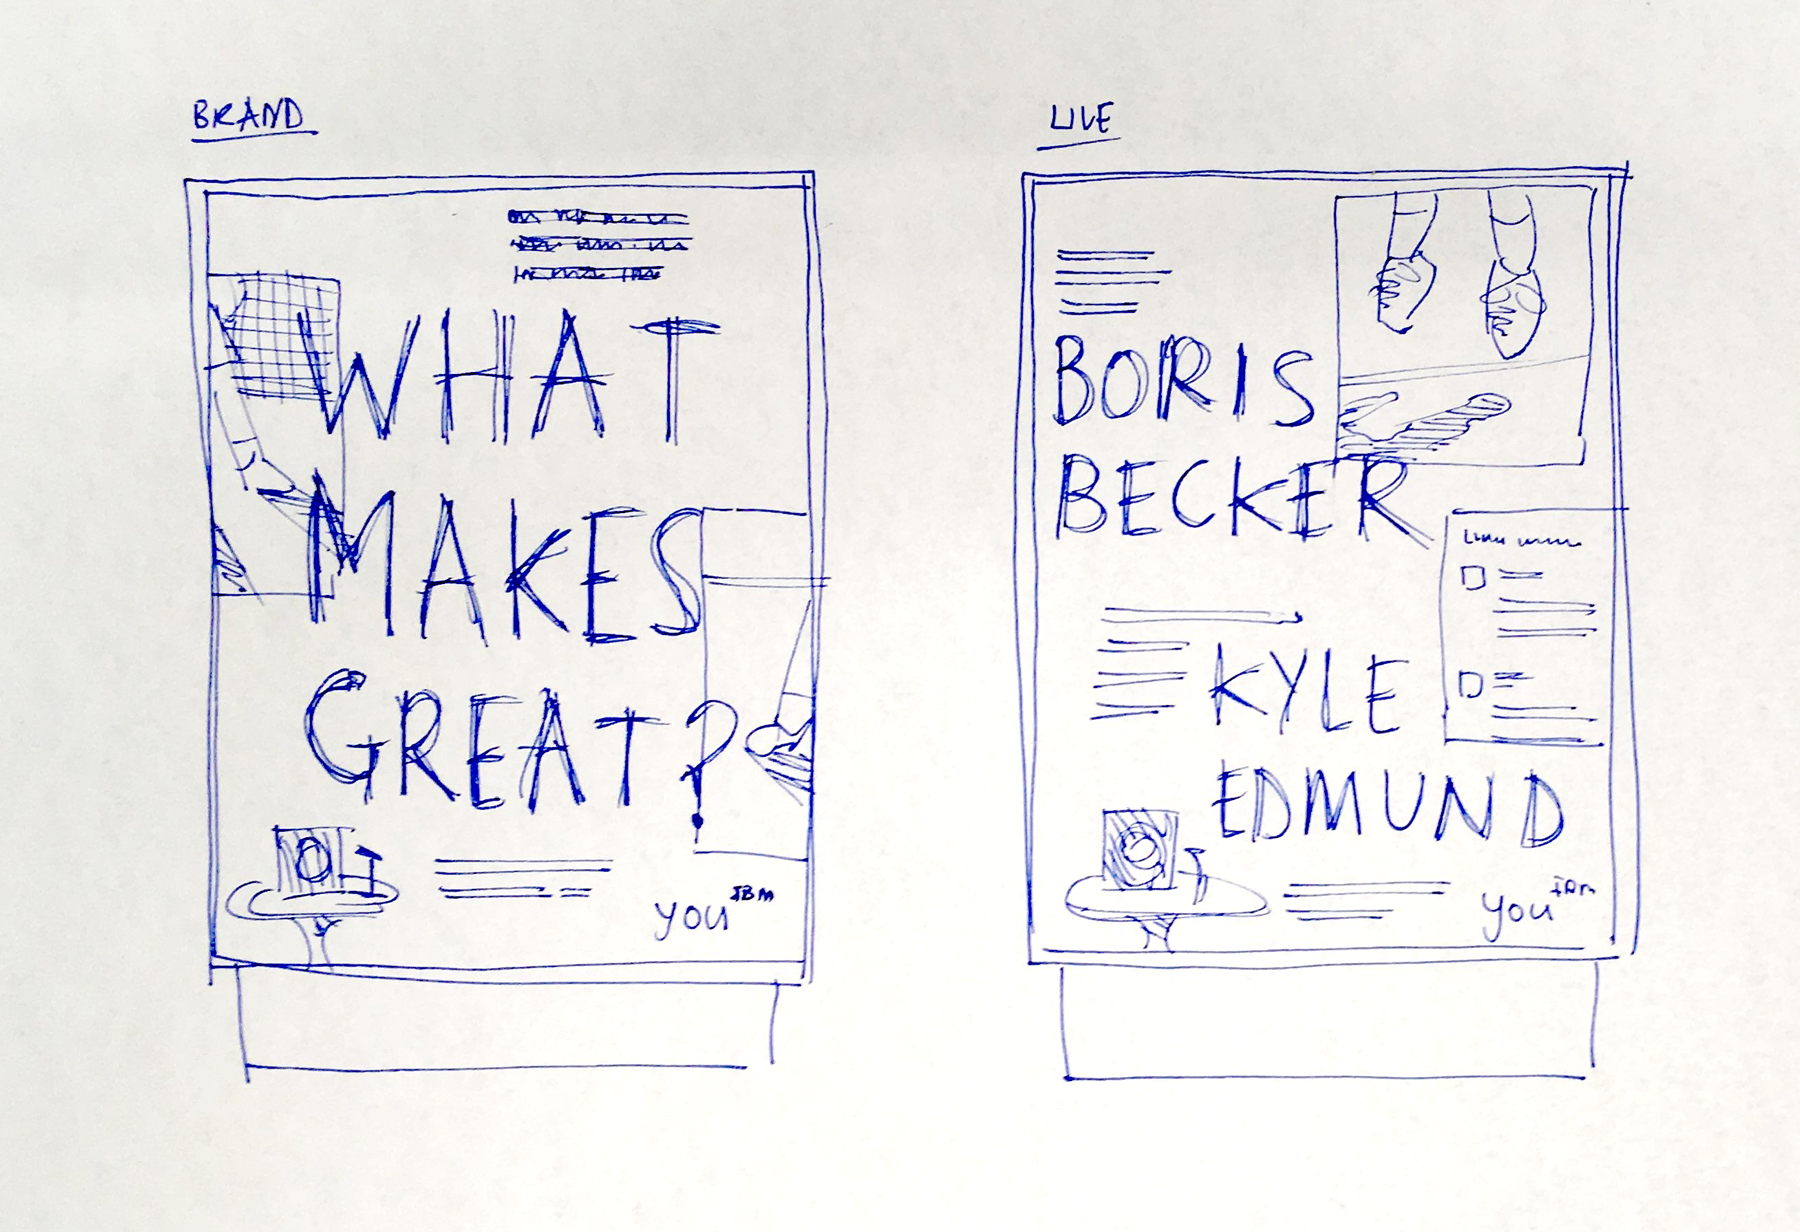 BRAND
WHAT
MAKES
GREAT?
you IBM
LIVE
BORIS
BECKER
KYLE
EDMUND
you IBM